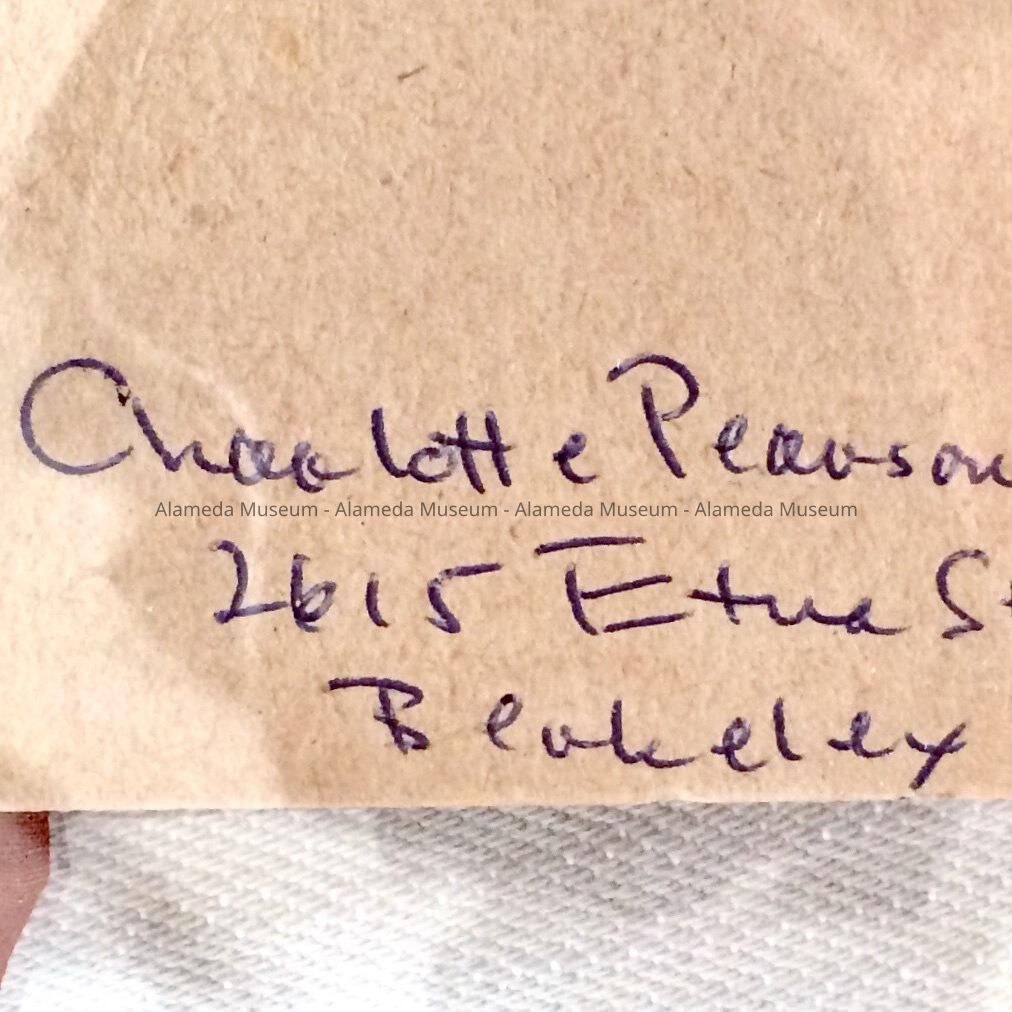 Charlotte Pearson
Alameda Museum - Alameda Museum - Alameda Museum - Alameda Museum
2615 Etna St
Berkeley